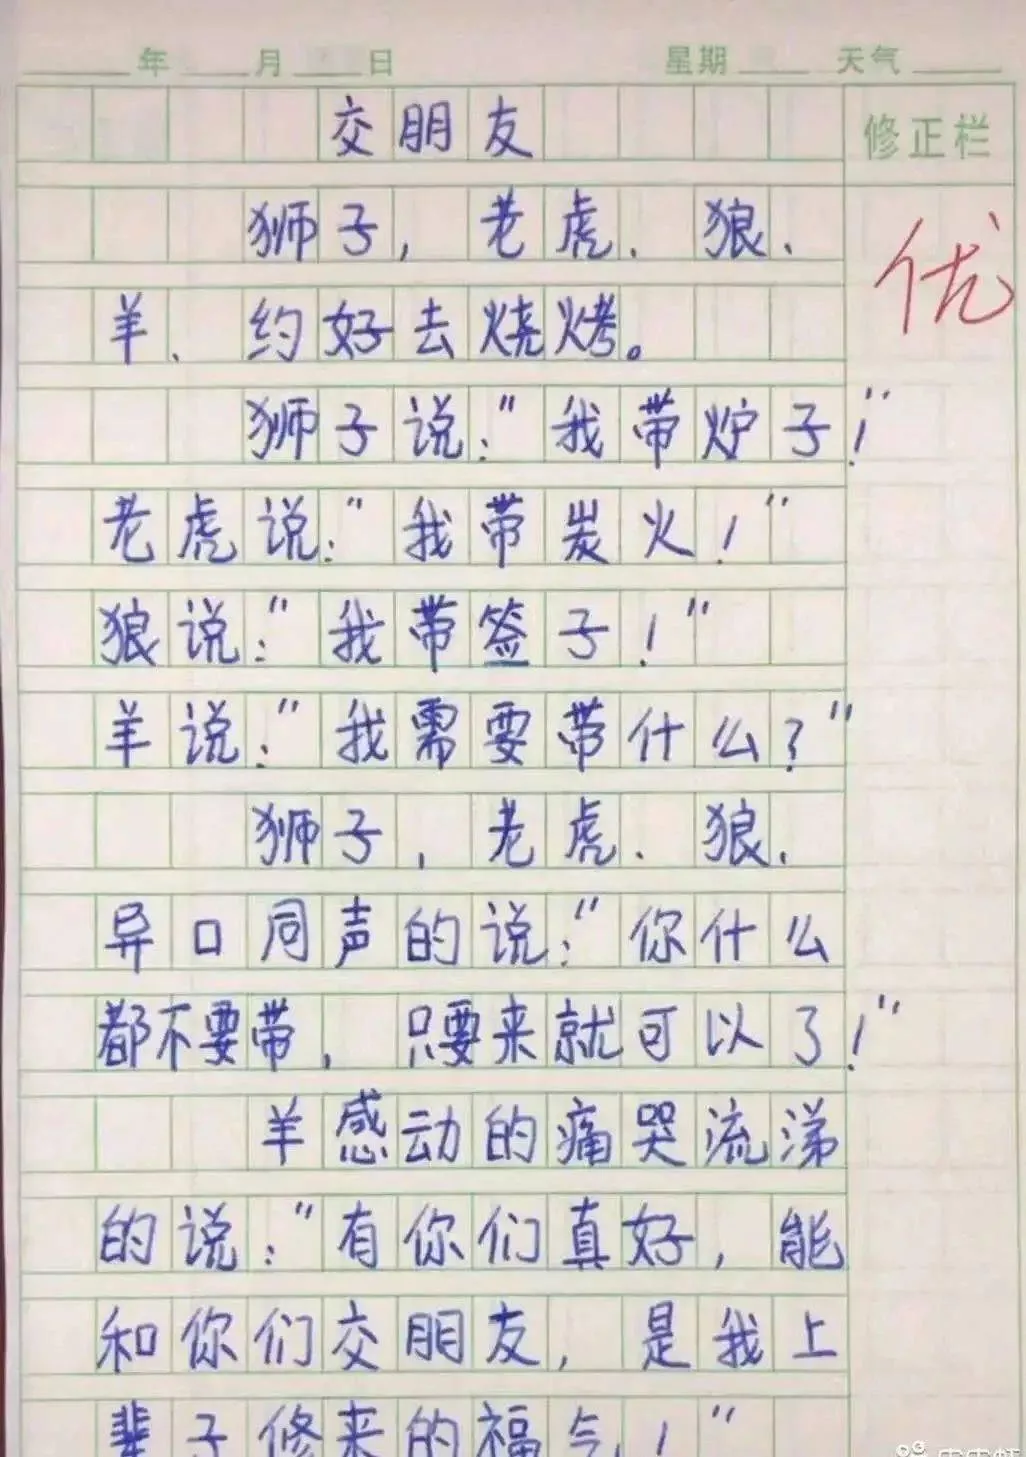 年 月 日 星期 天气
交朋友 修正栏
狮子，老虎、狼、
优
羊、约好去烧烤。
狮子说："我带炉子！"
老虎说："我带炭火！"
狼说："我带签子！"
羊说："我需要带什么？"
狮子，老虎、狼、
异口同声的说："你什么
都不要带，只要来就可以了！"
羊感动的痛哭流涕
的说："有你们真好，能
和你们交朋友，是我上
辈子修来的福气！"